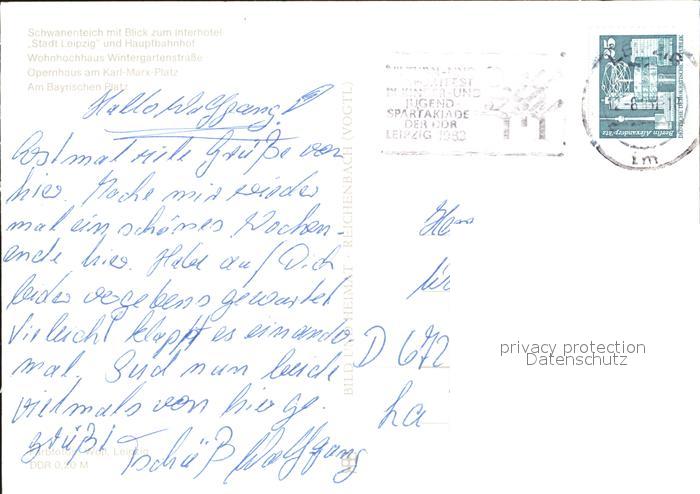 Schwanenteich mit Blick zum Interhotel
„Stadt Leipzig" und Hauptbahnhof
Wohnhochhaus Wintergartenstraße
Opernhaus am Karl-Marx-Platz
Am Bayrischen Platz
Hallo Wolfgang!
Erstmal viele Grüße von
hier. Mache mir wieder
mal ein schönes Wochen-
ende hier. Habe auf Dich
leider vergebens gewartet
vielleicht klappt es ein ander-
mal. Seid nun beide
vielmals von hier ge-
grüßt
Tschüß Wolfgang
Leipzig
DDR 0,20 M
BILD UND HEIMAT REICHENBACH (VOGTL)
KINDER- UND
JUGEND-
SPARTAKIADE
DER DDR
LEIPZIG 1983
25
Berlin, Alexanderplatz
D 672
La
privacy protection
Datenschutz